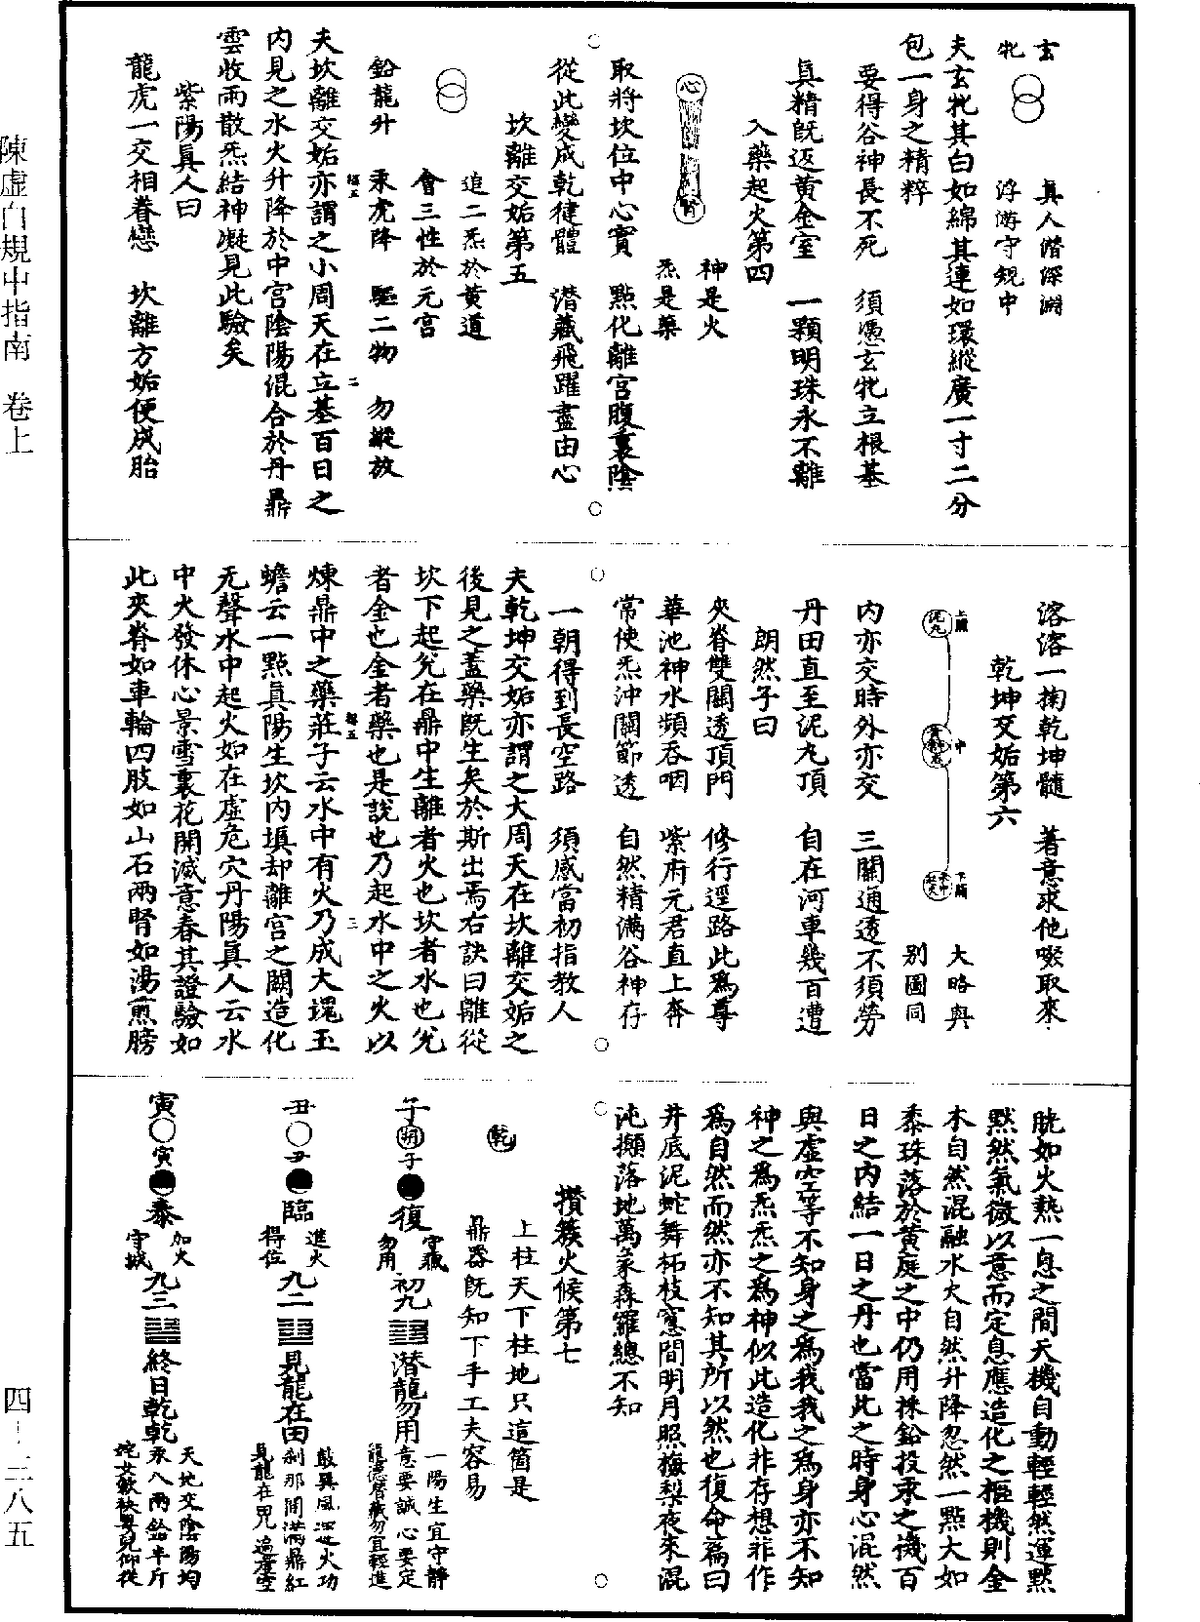 陳虛白規中指南 卷上
四—三八五
玄
牝
真人潛深淵
浮游守規中
夫玄牝其白如綿其連如環縱廣一寸二分
包一身之精粹
要得谷神長不死 須憑玄牝立根基
真精既返黃金室 一顆明珠永不離
入藥起火第四
心
腎
神是火
炁是藥
取將坎位中心實 點化離宮腹裏陰
從此變成乾健體 潛藏飛躍盡由心
坎離交姤第五
追二炁於黃道
會三性於元宮
鉛龍升 汞虎降 驅二物 勿縱放
夫坎離交姤亦謂之小周天在立基百日之
內見之水火升降於中宮陰陽混合於丹鼎
雲收雨散炁結神凝見此驗矣
紫陽真人曰
龍虎一交相眷戀 坎離方姤便成胎
溶溶一掬乾坤髓 著意求他啜取來
乾坤交姤第六
上關
泥丸
中
黃庭
下關
大略與
別圖同
內亦交時外亦交 三關通透不須勞
丹田直至泥丸頂 自在河車幾百遭
朗然子曰
夾脊雙關透頂門 修行逕路此為尊
華池神水頻吞咽 紫府元君直上奔
常使炁沖關節透 自然精滿谷神存
一朝得到長空路 須感當初指教人
夫乾坤交姤亦謂之大周天在坎離交姤之
後見之蓋藥既生矣於斯出焉右訣曰離從
坎下起兌在鼎中生離者火也坎者水也兌
者金也金者藥也是說也乃起水中之火以
煉鼎中之藥莊子云水中有火乃成大塊玉
蟾云一點真陽生坎內填却離宮之闕造化
无聲水中起火如在虛危穴丹陽真人云水
中火發休心景雪裏花開滅意春其證驗如
此夾脊如車輪四肢如山石兩腎如湯煎膀
胱如火熱一息之間天機自動輕輕然運默
默然氣微以意而定息應造化之樞機則金
木自然混融水火自然升降忽然一點大如
黍珠落於黃庭之中仍用採鉛投汞之機百
日之內結一日之丹也當此之時身心混然
與虛空等不知身之為我我之為身亦不知
神之為炁炁之為神似此造化非存想非作
為自然而然亦不知其所以然也復命篇曰
井底泥蛇舞柘枝窗間明月照梅梨夜來混
沌攧落地萬象森羅總不知
攢簇火候第七
乾
上柱天下柱地只這箇是
鼎器既知下手工夫容易
子 朔 子 復 守藏勿用 初九 潛龍勿用 一陽生宜守靜意要誠心要定龍德潛藏勿宜輕進
丑 丑 臨 進火得位 九二 見龍在田 鼓巽風運火功剎那間滿鼎紅見龍在田
寅 寅 泰 加火守城 九三 終日乾乾 天地交陰陽均汞八兩鉛半斤